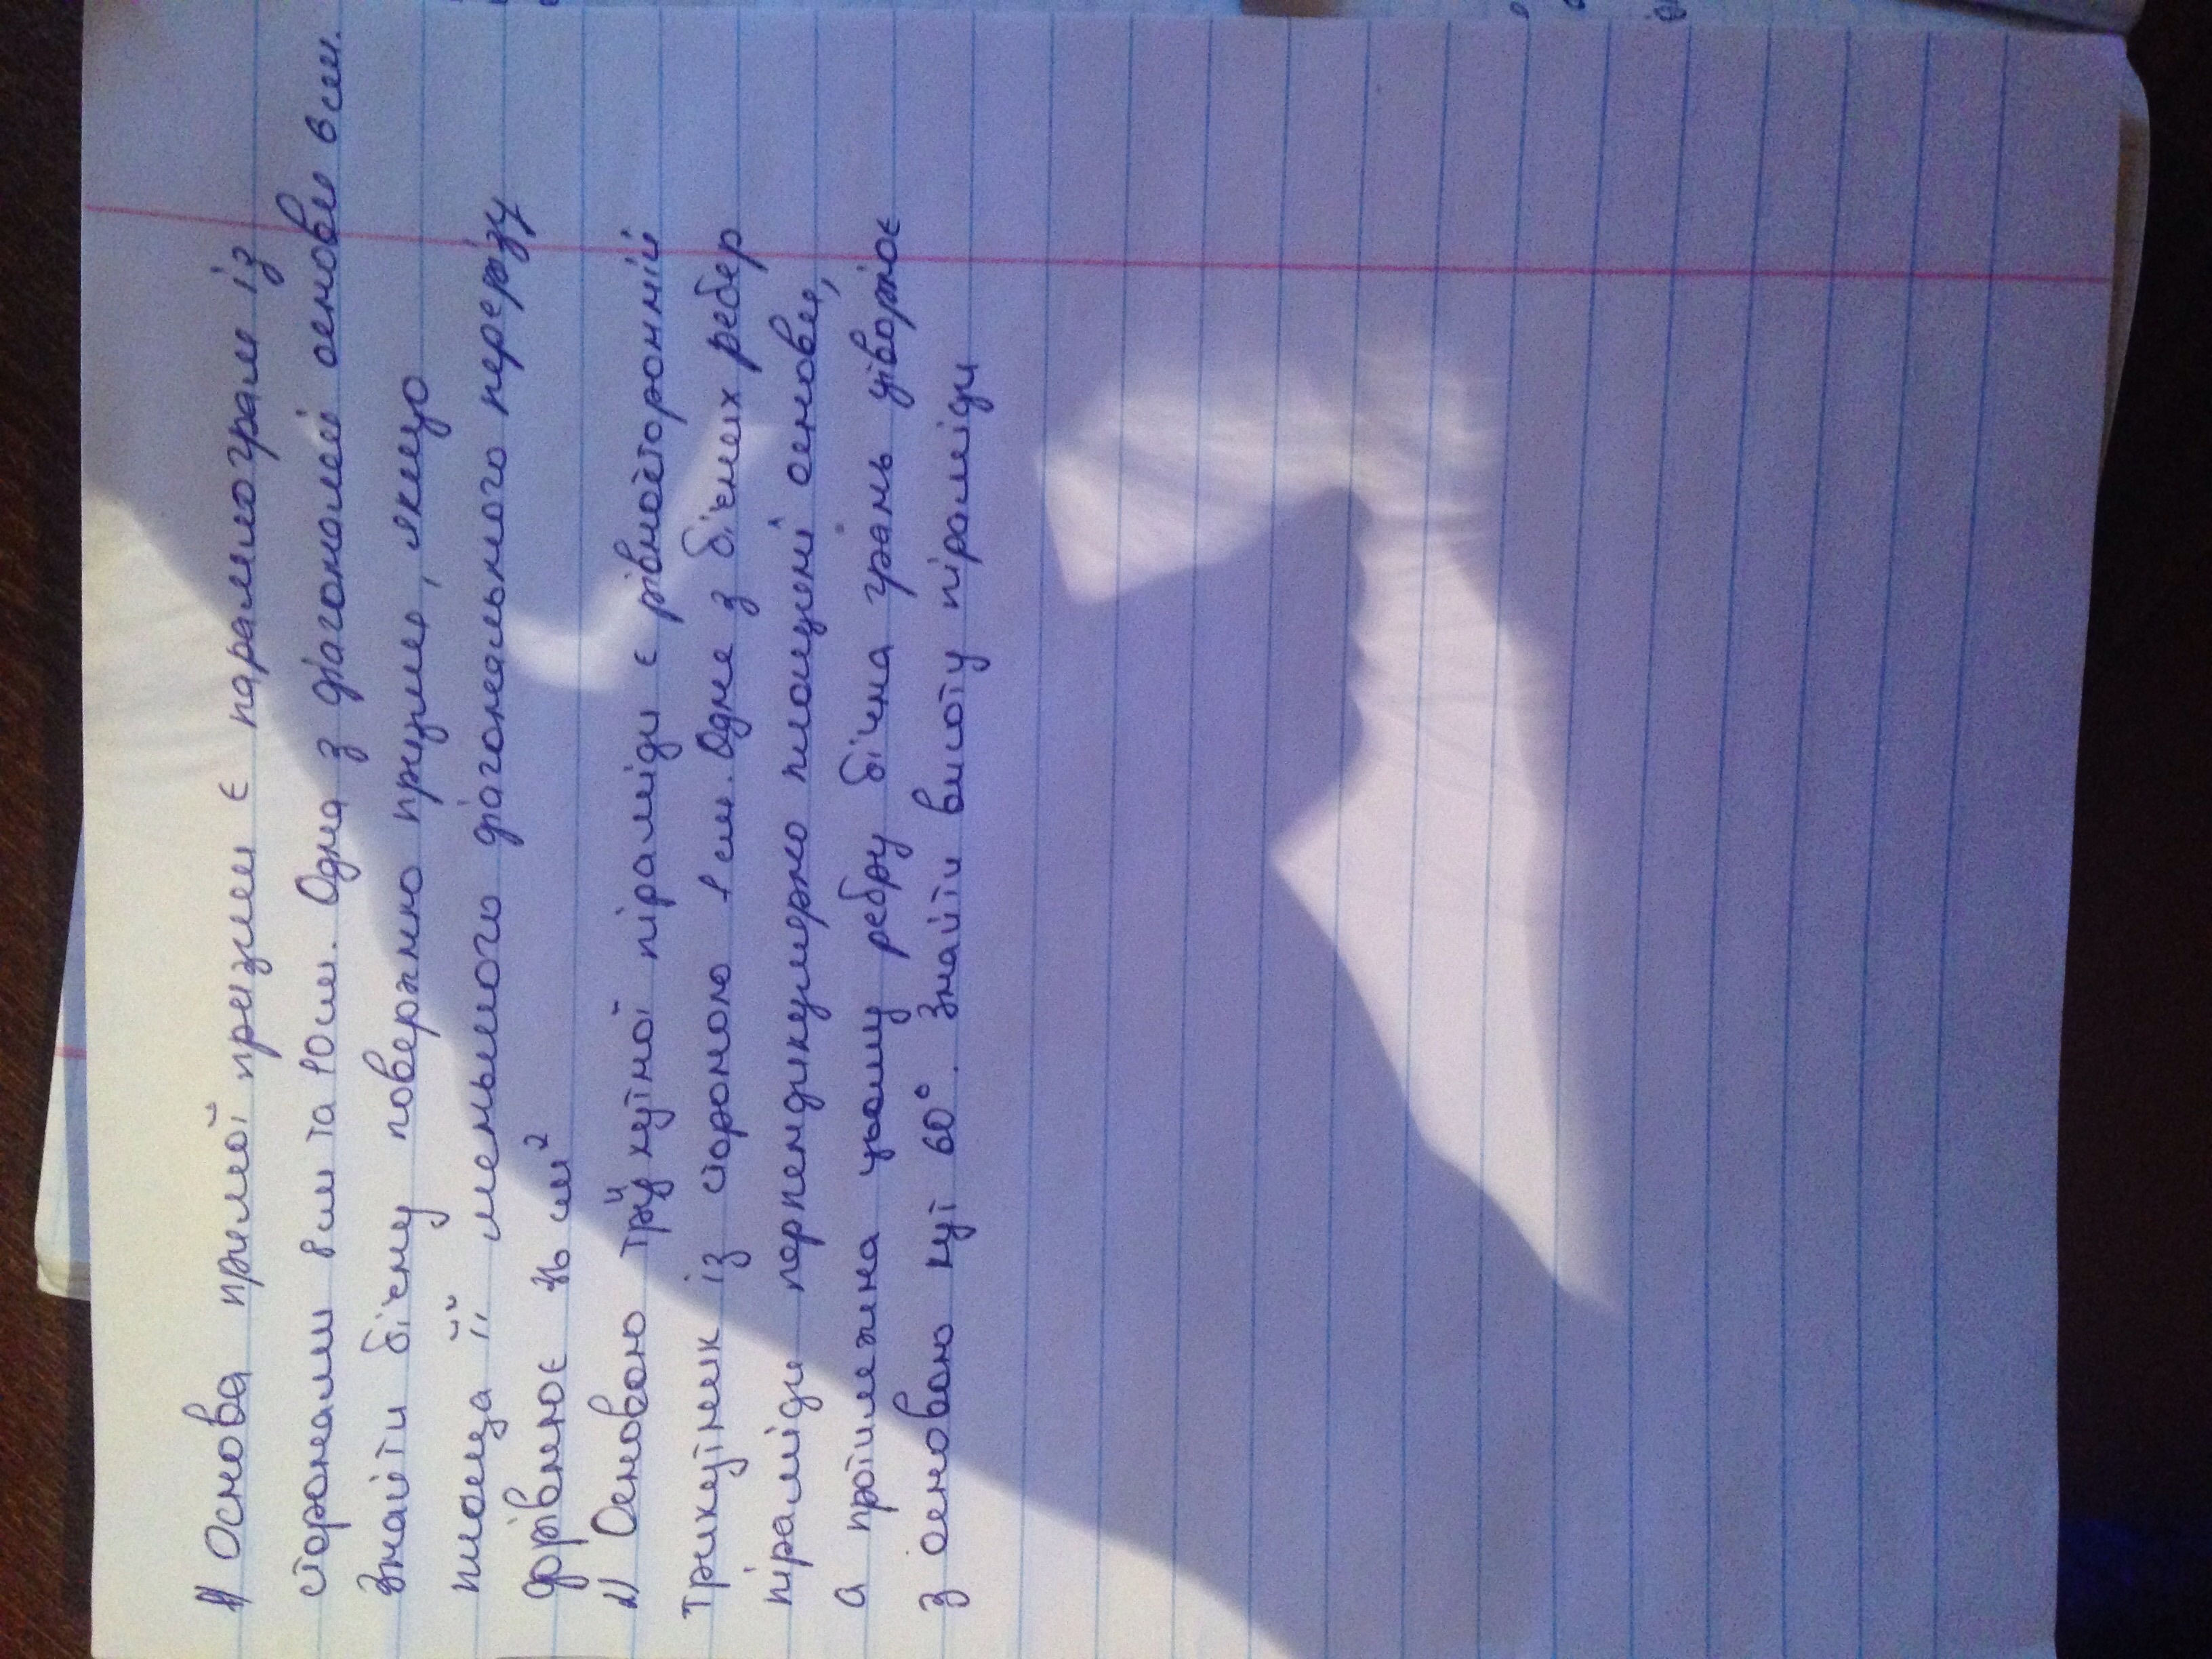 1) Основа прямої призми є паралелограм із
сторонами 8см та 10см. Одна з діагоналей основи 6 см.
Знайти бічну поверхню призми, якщо
площа її меньшого діагонального перерізу
дорівнює см²
2) Основою трикутної піраміди є рівносторонній
трикутник із стороною см. Одне з бічних ребер
піраміди перпендикулярно площені основи,
а протилежна цьому ребру бічна грань утворює
з основою кут 60°. Знайти висоту піраміди